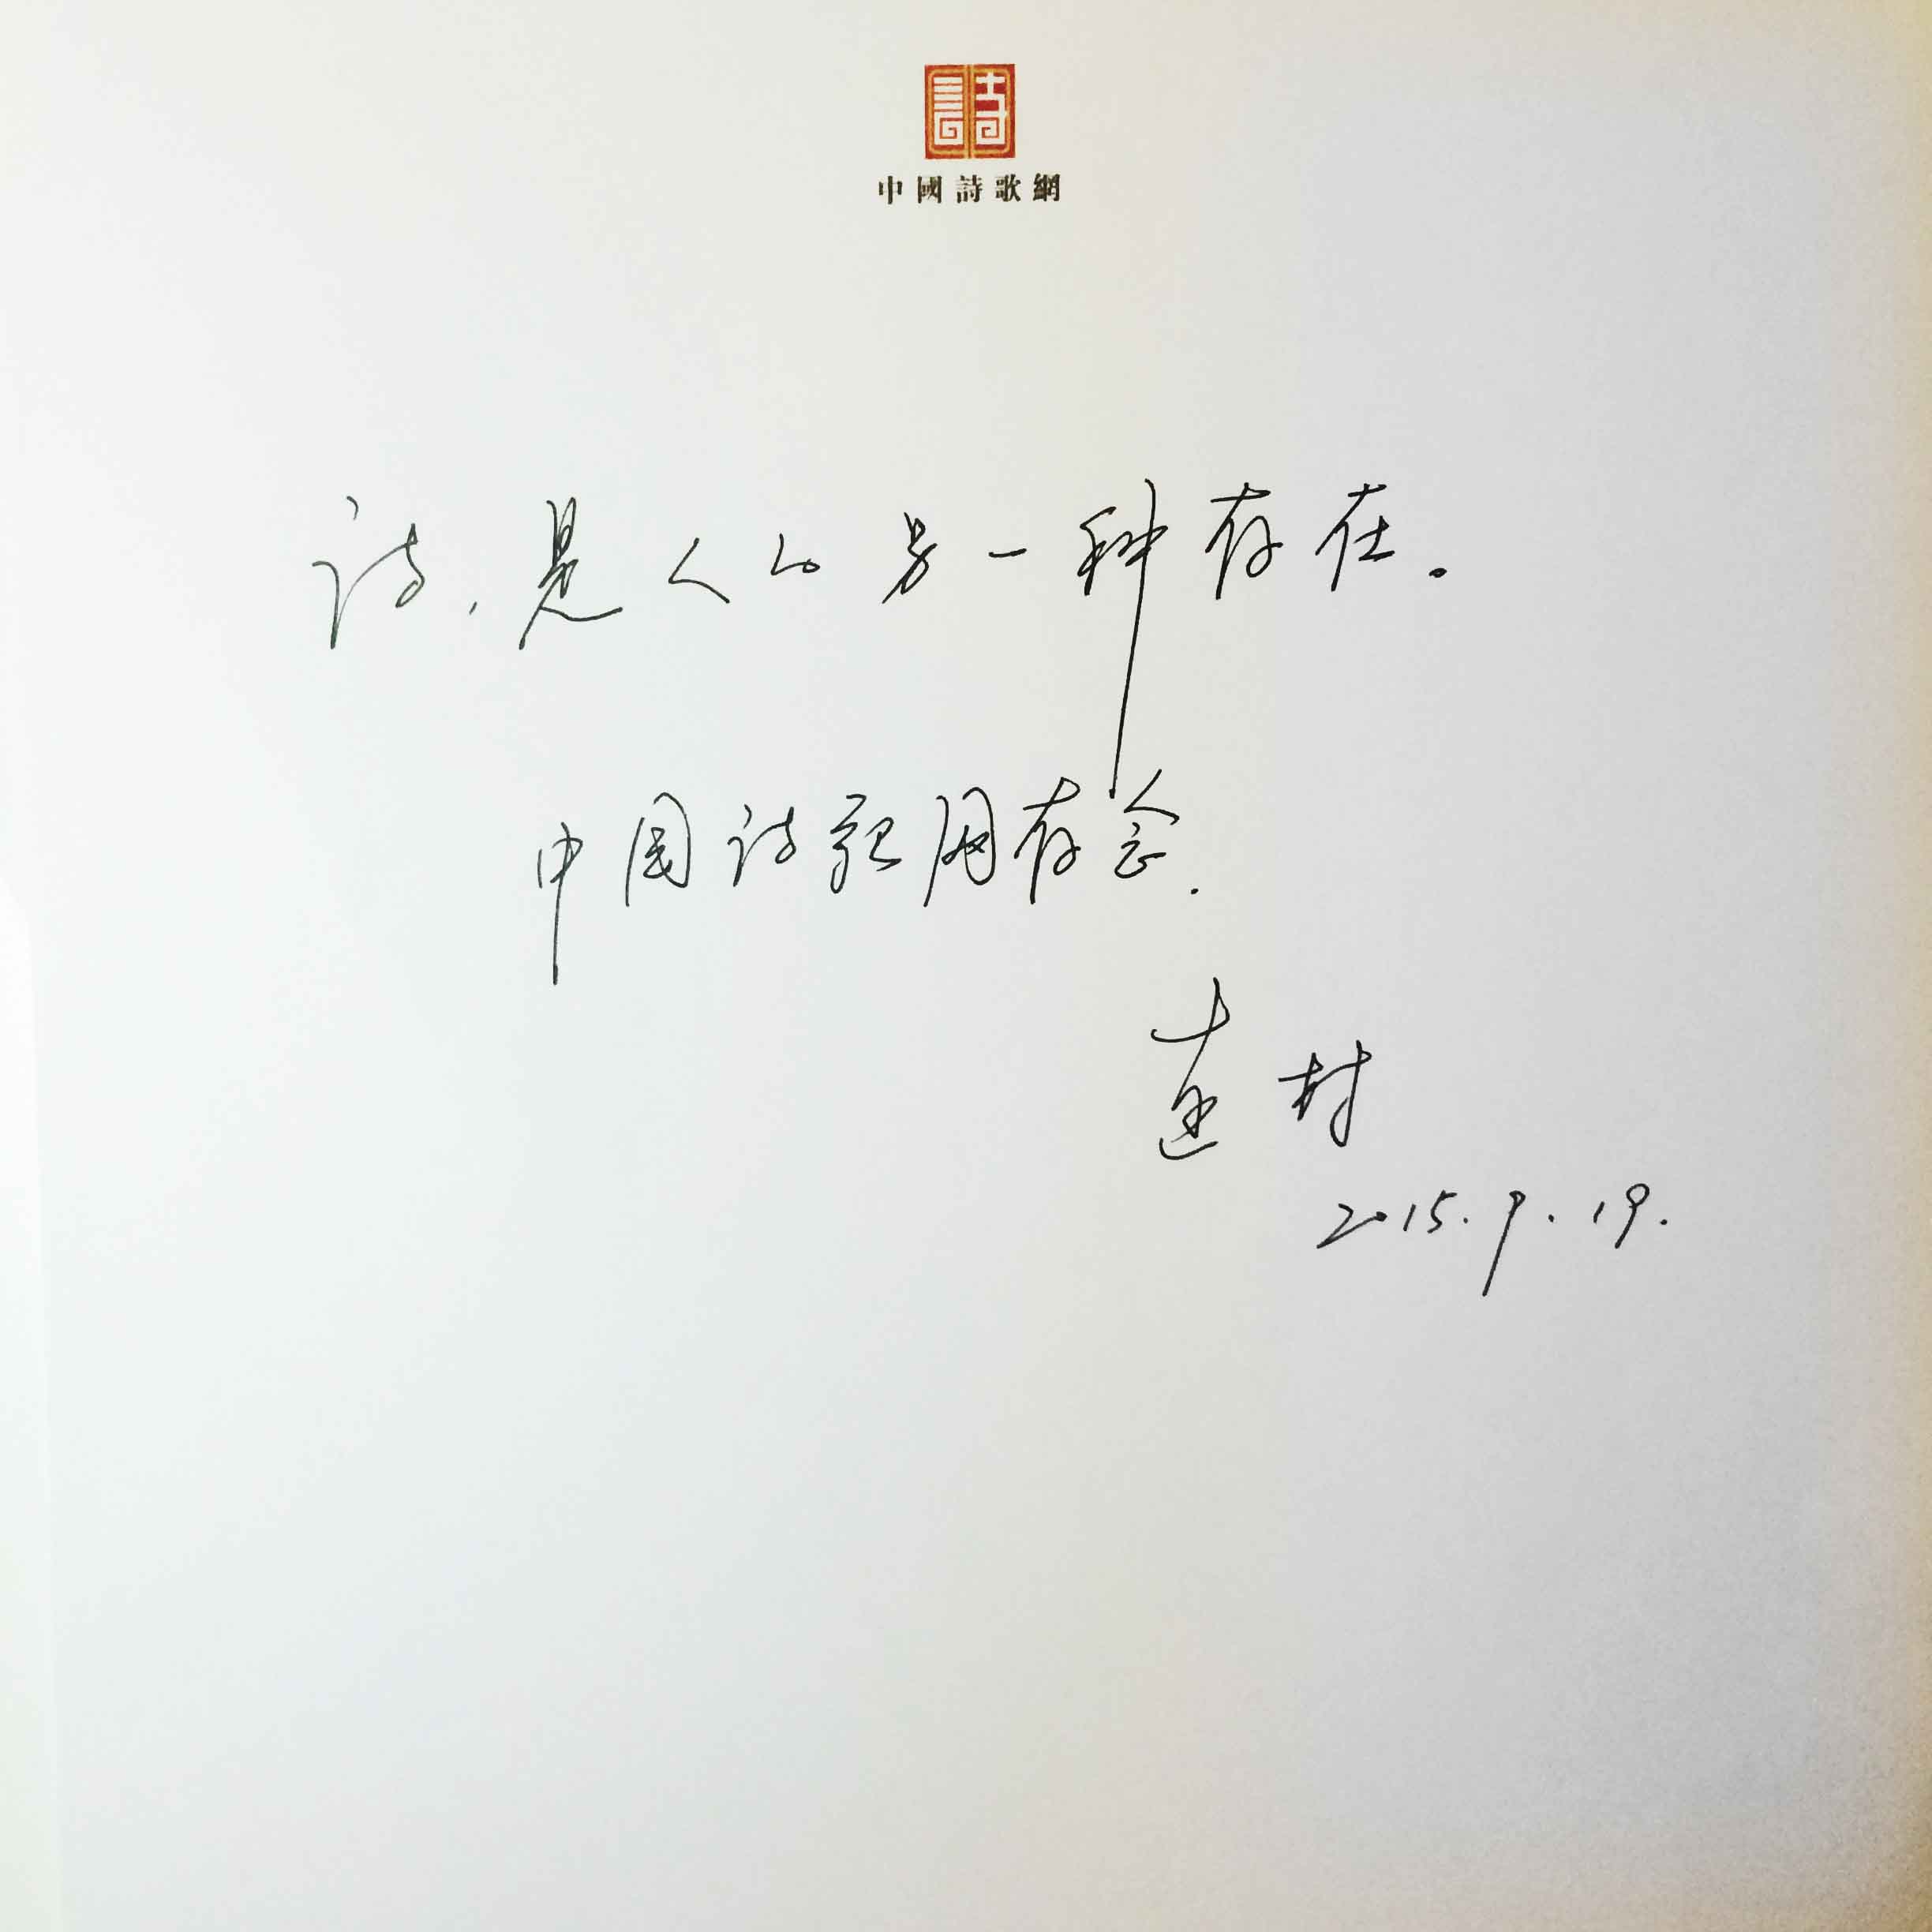 詩
中國詩歌網
诗,是人的另一种存在。
中国诗歌网存念.
村
2015.9.19.